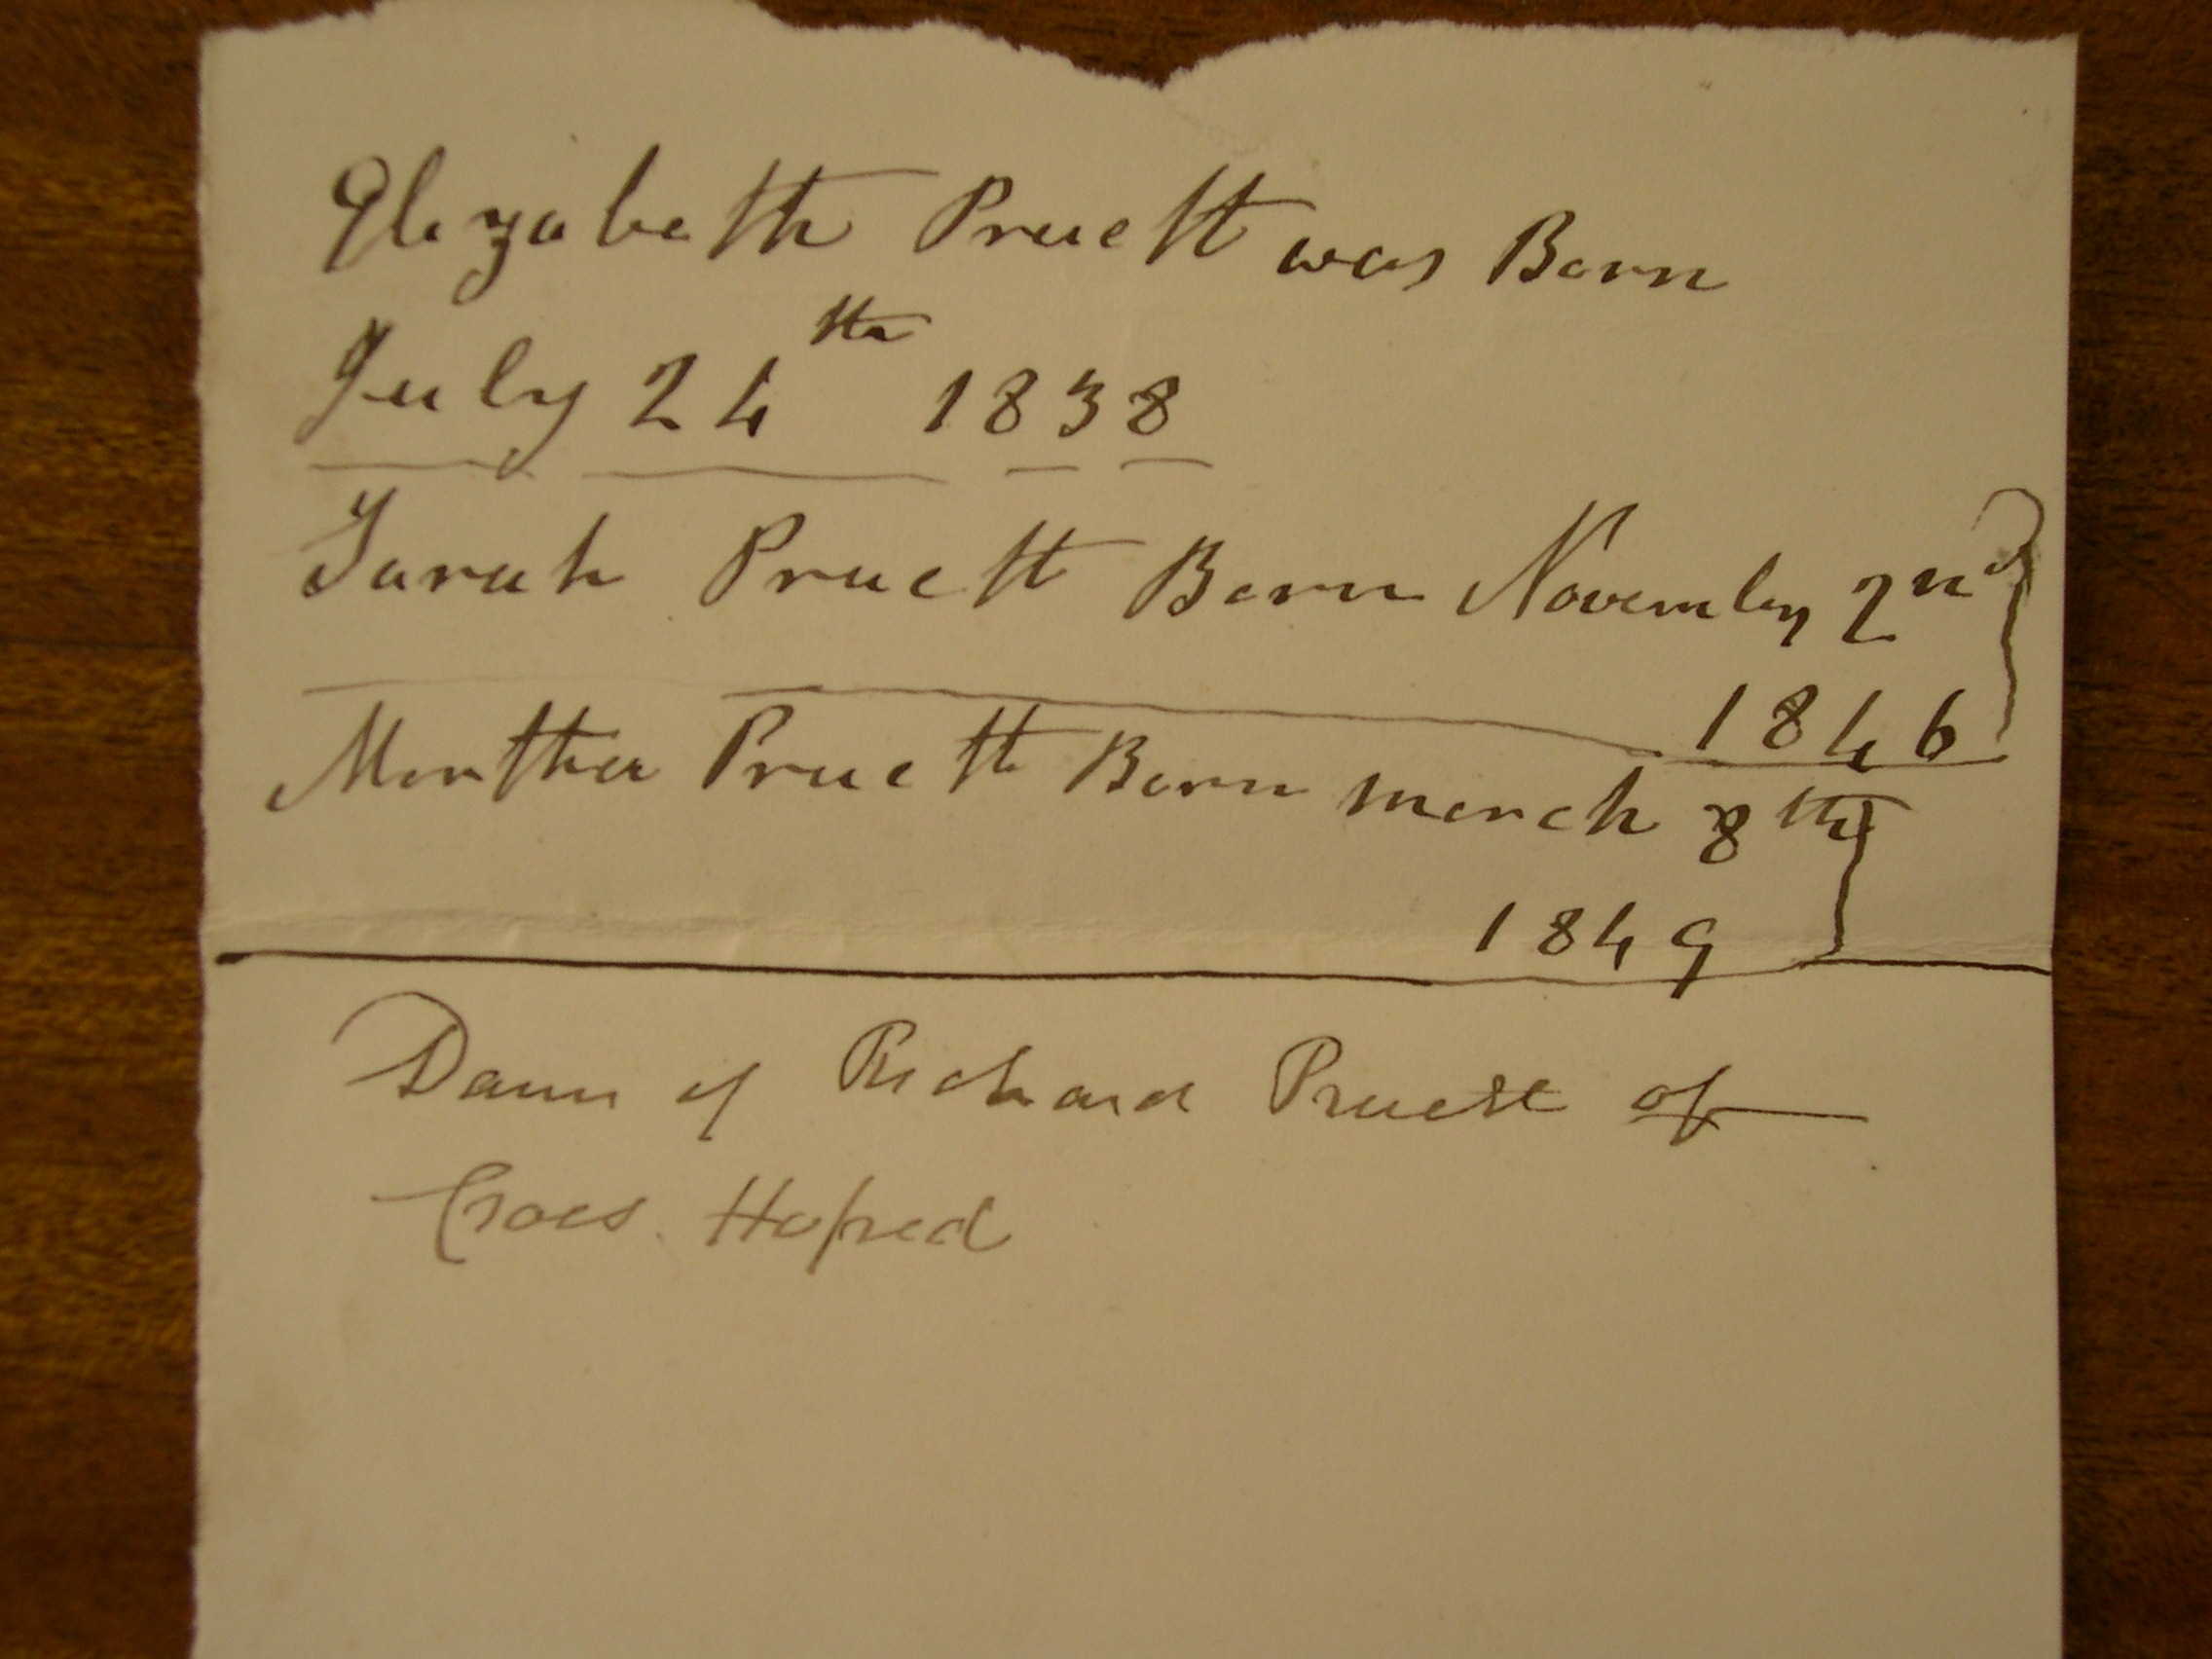 Elizabeth Pruett was Born
July 24th 1838
Sarah Pruett Born November 2nd
1846
Martha Pruett Born march 8th
1849
of Richard Pruett of